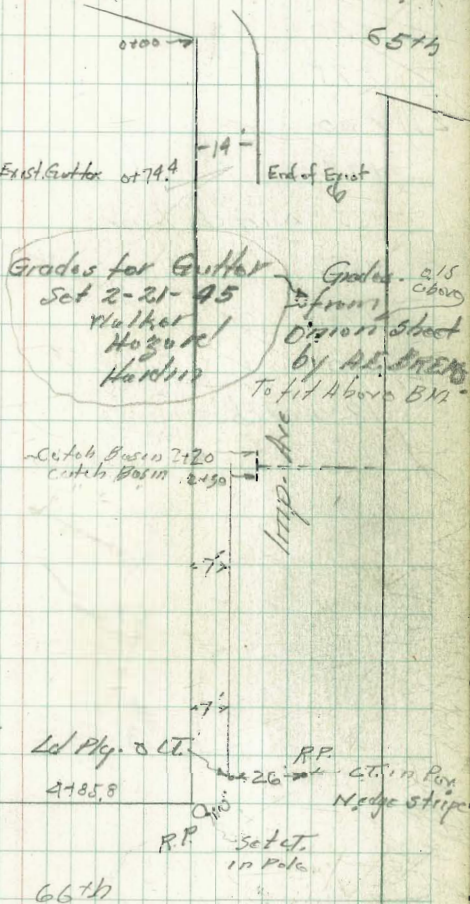 65th
0+00
14'
Exist. Gutter 0+74.4
End of Exist
Grades for Gutter
Set 2-21-45
Walker
Hazard
Hardin
Grades a/s
above
from
Onion sheet
by A.E. BREMS
To fit Above BM
Catch Basin 2+20
Catch Basin 2+30
Imp. Ave
7'
7'
Ld Plg. & CT.
26
R.P.
CT. in Pav.
N. edge stripe
4+85.8
R.P.
Set CT.
in Pole
66th